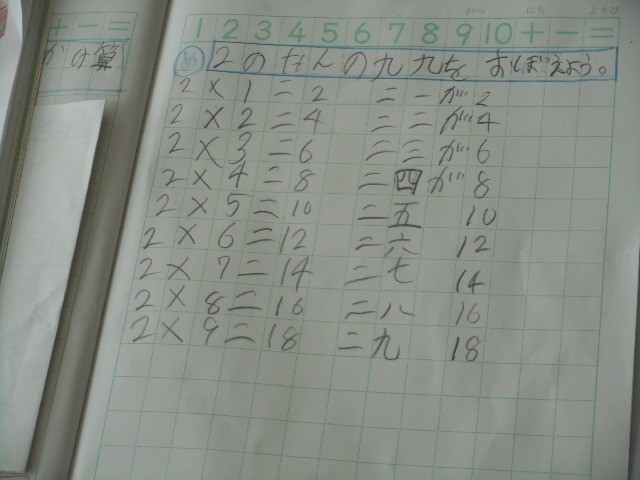 + - =
かけ算
1 2 3 4 5 6 7 8 9 10 + - =
がつ にち ようび
め 2のだんの九九を おぼえよう。
2 × 1 = 2 二一が2
2 × 2 = 4 二二が4
2 × 3 = 6 二三が6
2 × 4 = 8 二四が8
2 × 5 = 10 二五 10
2 × 6 = 12 二六 12
2 × 7 = 14 二七 14
2 × 8 = 16 二八 16
2 × 9 = 18 二九 18